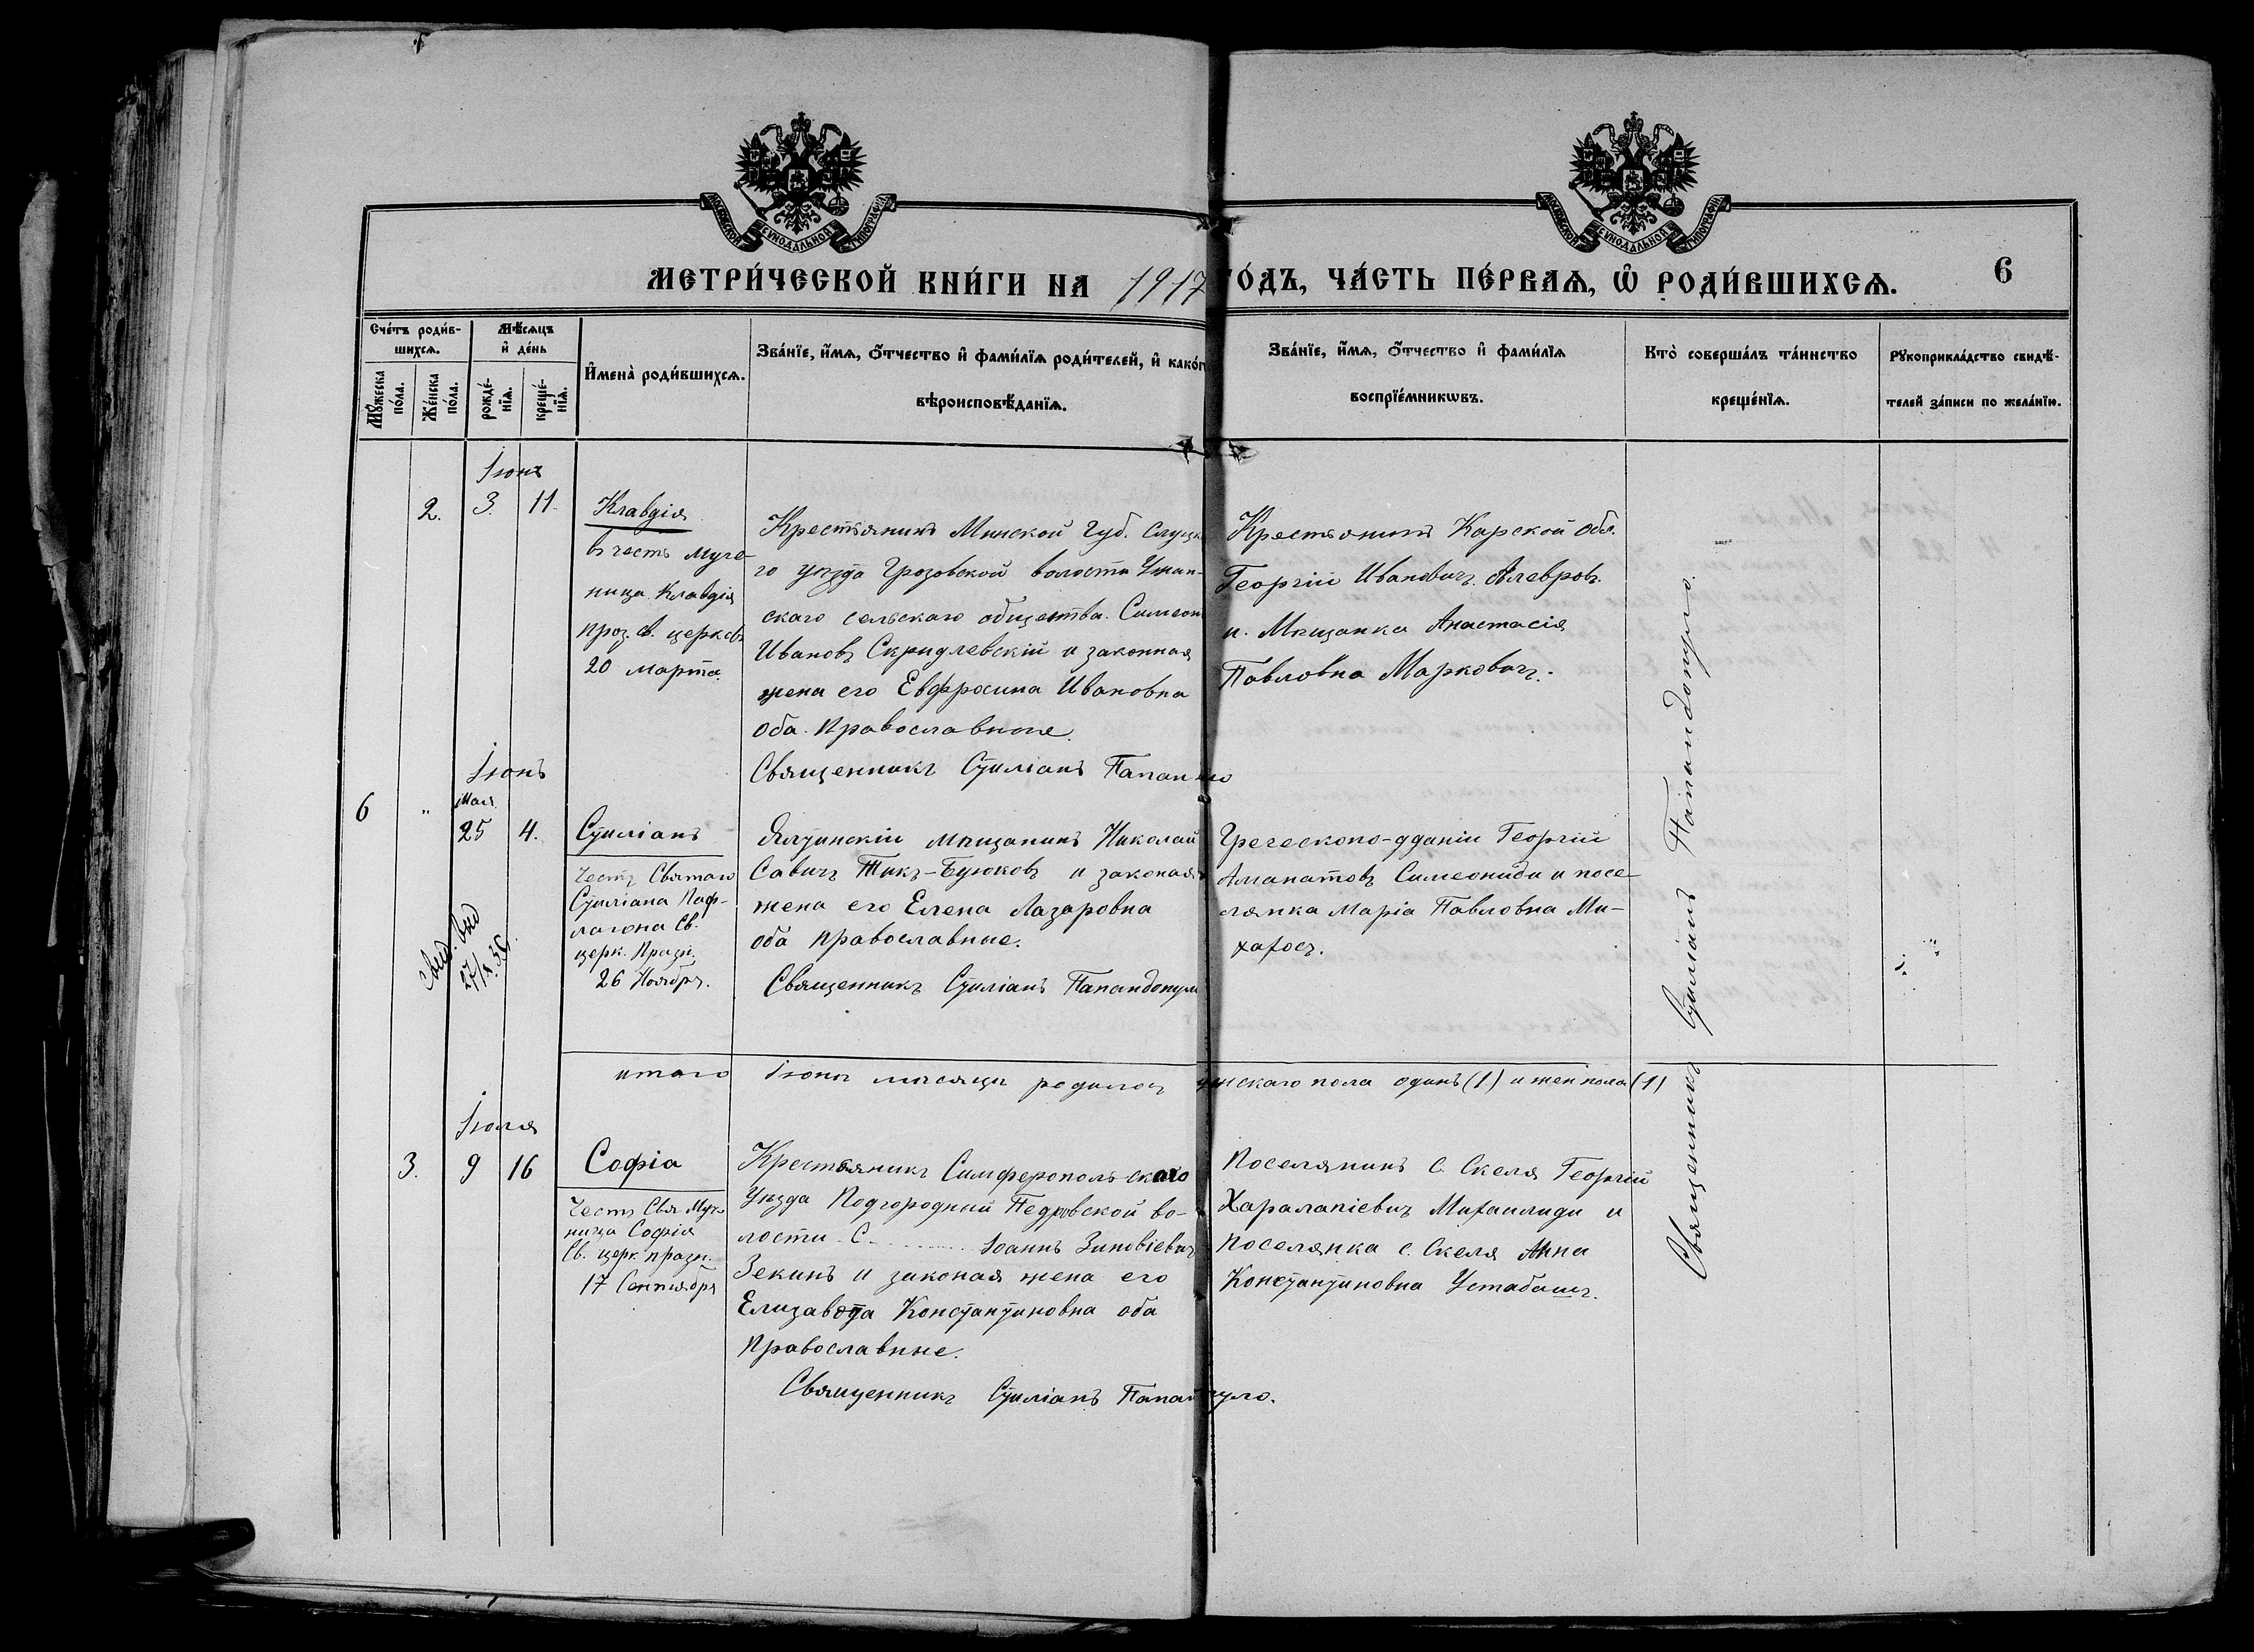 МОСКОВСКОЙ СУНОДАЛЬНОЙ ТИПОГРАФІИ
МОСКОВСКОЙ СУНОДАЛЬНОЙ ТИПОГРАФІИ
МЕТРИ́ЧЕСКОЙ КНИ́ГИ НА 1917 ГО́ДЪ, ЧА́СТЬ ПЕ́РВАѦ, Ѡ҆ РОДИ́ВШИХСѦ. 6
Сче́тъ роди́в-
шихсѧ.
Мѣ́сѧцъ
и҆ де́нь
Мꙋ́жеска по́ла.
Же́нска по́ла.
рожде́-
нїѧ.
креще́-
нїѧ.
И҆мена̀ роди́вшихсѧ.
Зва́нїе, и҆́мѧ, ѻ҆́тчество и҆ фами́лїѧ роди́телей, и҆ како́г
вѣроисповѣ́данїѧ.
Зва́нїе, и҆́мѧ, ѻ҆́тчество и҆ фами́лїѧ
воспрїе́мникѡвъ.
Кто̀ соверша́лъ та́инство
креще́нїѧ.
Рꙋкоприкла́дство свидѣ́-
телей за́писи по жела́нїю.
Іюнъ
2. 3. 11.
Клавдія
въ честь муче-
ница Клавдія
праз. св. церковъ
20 марта.
Крестьянинъ Минской Губ. Слуцк
го уѣзда Грозовской волости
скаго сельскаго общества. Симеон
Ивановъ Скридлевскій и законная
жена его Евфросина Ивановна
оба Православные.
Священникъ Стиліанъ Папан
Крестьянинъ Карской обл.
Георгій Ивановичъ Алевровъ
и. Мѣщанка Анастасія
Павловна Марковичъ.
Іюнъ
Мая
6 " 25 4.
Стиліанъ
Честь Святаго
Стиліана Паф-
лагона Св.
церк. Празн.
26 Ноября.
Свид. выд
27/X.36.
Ялтинскій мѣщанинъ Николай
Савичъ Тикъ-Буюковъ и законая
жена его Елена Лазаровна
оба православные.
Священникъ Стиліанъ Папандопул
Греческопо-дданій Георгій
Аманатовъ Симеониди и посе-
лянка Марія Павловна Ми-
хафосъ.
итого Іюнъ мѣсяцъ родилось мужскаго пола одинъ (1) и жен пола (1)
Іюля
3. 9 16
Софіа
Честь Свя Муч-
ница Софія
Св. церк празн.
17 Сентября
Крестьяникъ Симферопольскаго
Уѣзда Подгородный Педровской во-
лости С. ......... Іоаннъ Зиновіевич
Зекинъ и законая жена его
Елизавета Константиновна оба
Православные.
Священникъ Стиліанъ Папандопуло.
Поселянинъ С. Скеля Георгій
Харалапіевичъ Михаилиди и
Поселянка с. Скеля Анна
Константиновна Устабашъ.
Священникъ Стиліанъ Папандопуло.